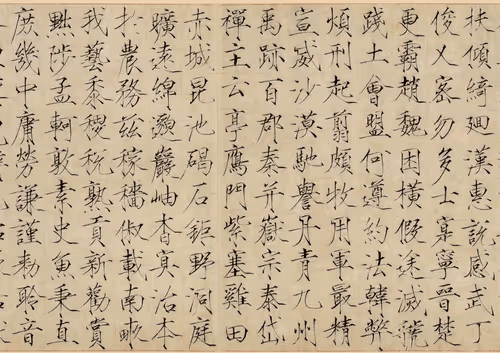 扶傾綺迴漢惠說感武丁
俊乂密勿多士寔寧晉楚
更霸趙魏困橫假途滅虢
踐土會盟何遵約法韓弊
煩刑起翦頗牧用軍最精
宣威沙漠馳譽丹青九州
禹跡百郡秦并嶽宗泰岱
禪主云亭鴈門紫塞雞田
赤城昆池碣石鉅野洞庭
曠遠綿邈巖岫杳冥治本
於農務茲稼穡俶載南畝
我藝黍稷稅熟貢新勸賞
黜陟孟軻敦素史魚秉直
庶幾中庸勞謙謹勑聆音